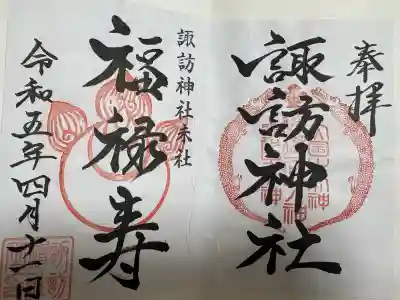 奉拝
諏訪神社
諏訪神社末社
福禄寿
令和五年四月十一日